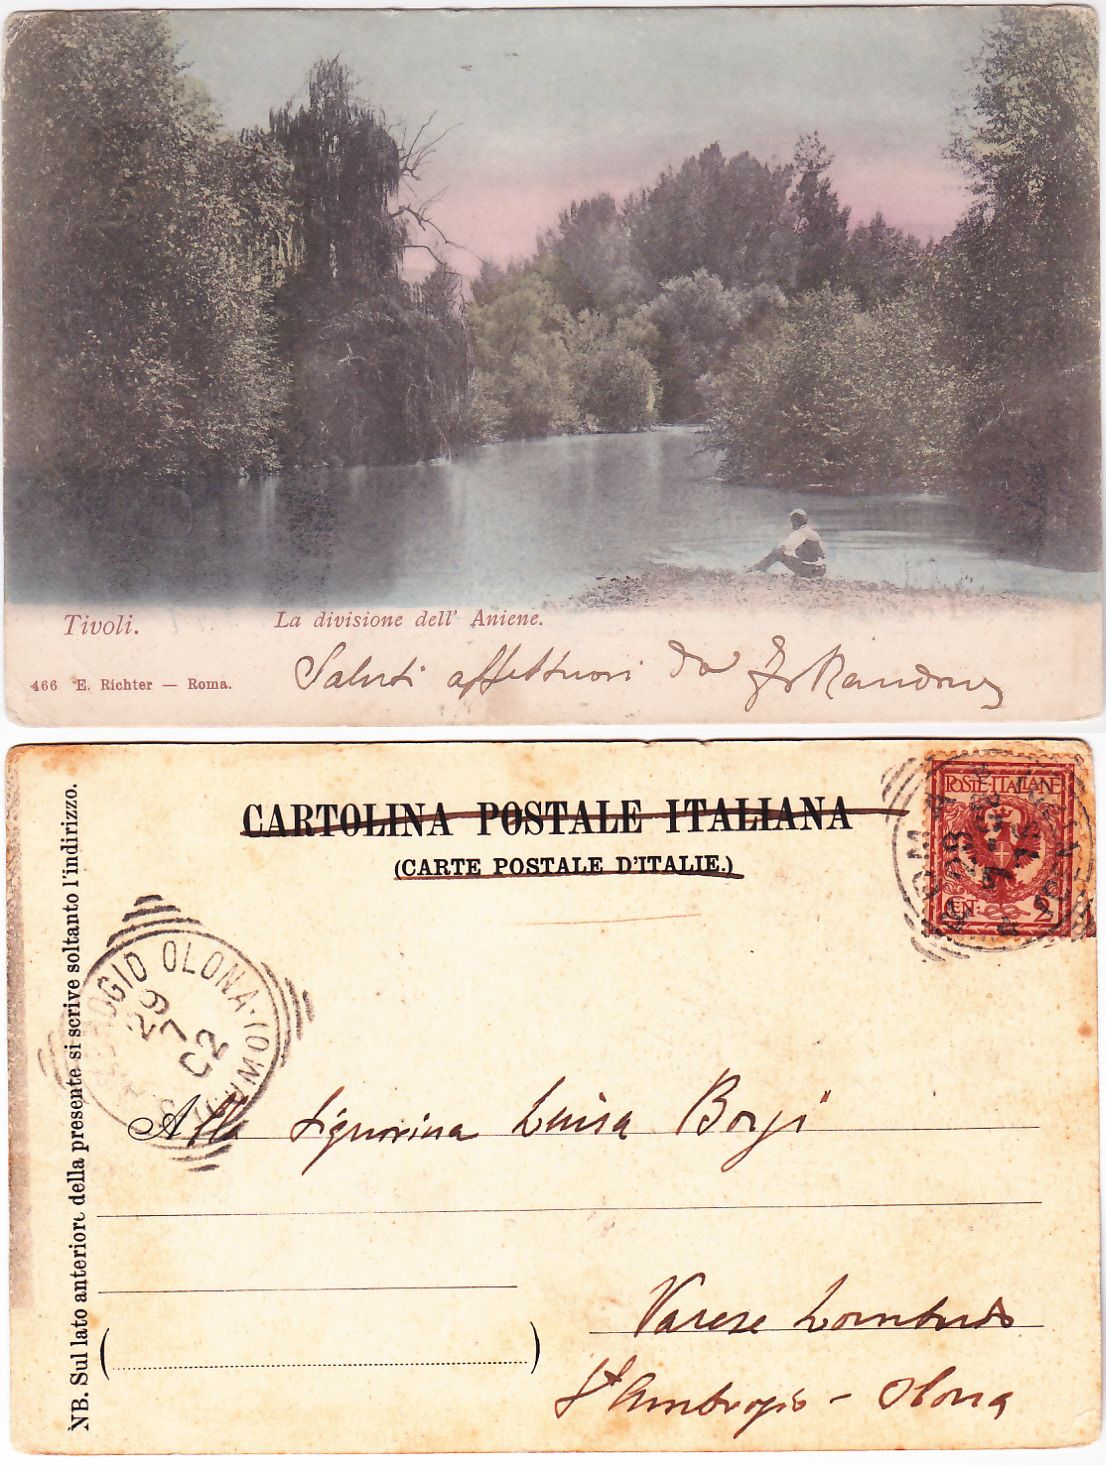 Tivoli.
La divisione dell' Aniene.
466 E. Richter — Roma.
Saluti affettuosi da
CARTOLINA POSTALE ITALIANA
(CARTE POSTALE D'ITALIE.)
POSTE·ITALIANE
CENT. 2
ROMA
28
7
OLONA·(COMO)
29
7
02
NB. Sul lato anteriore della presente si scrive soltanto l'indirizzo.
Alla Signorina Luisa Borgi
Varese Lombardo
St Ambrogio - Olona